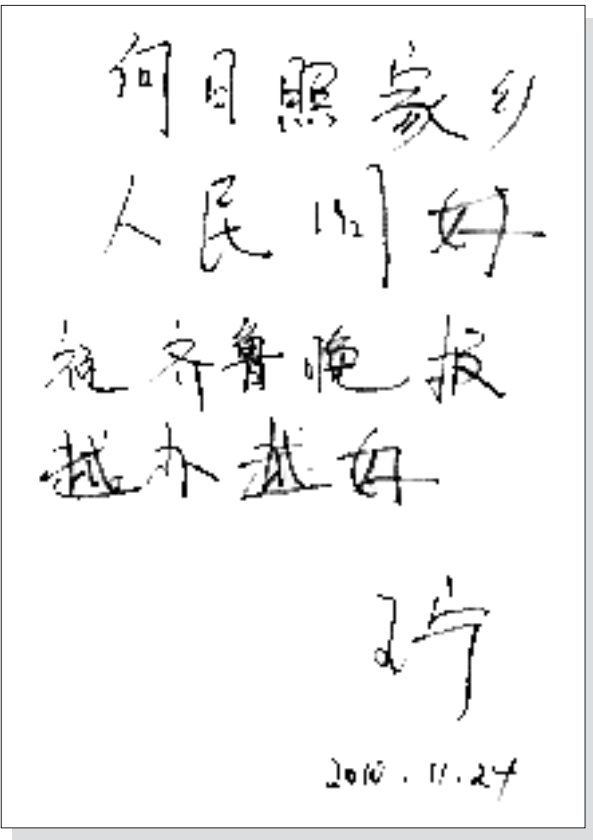 向日照家乡
人民问好
祝齐鲁晚报
越办越好
王宁
2010.11.24